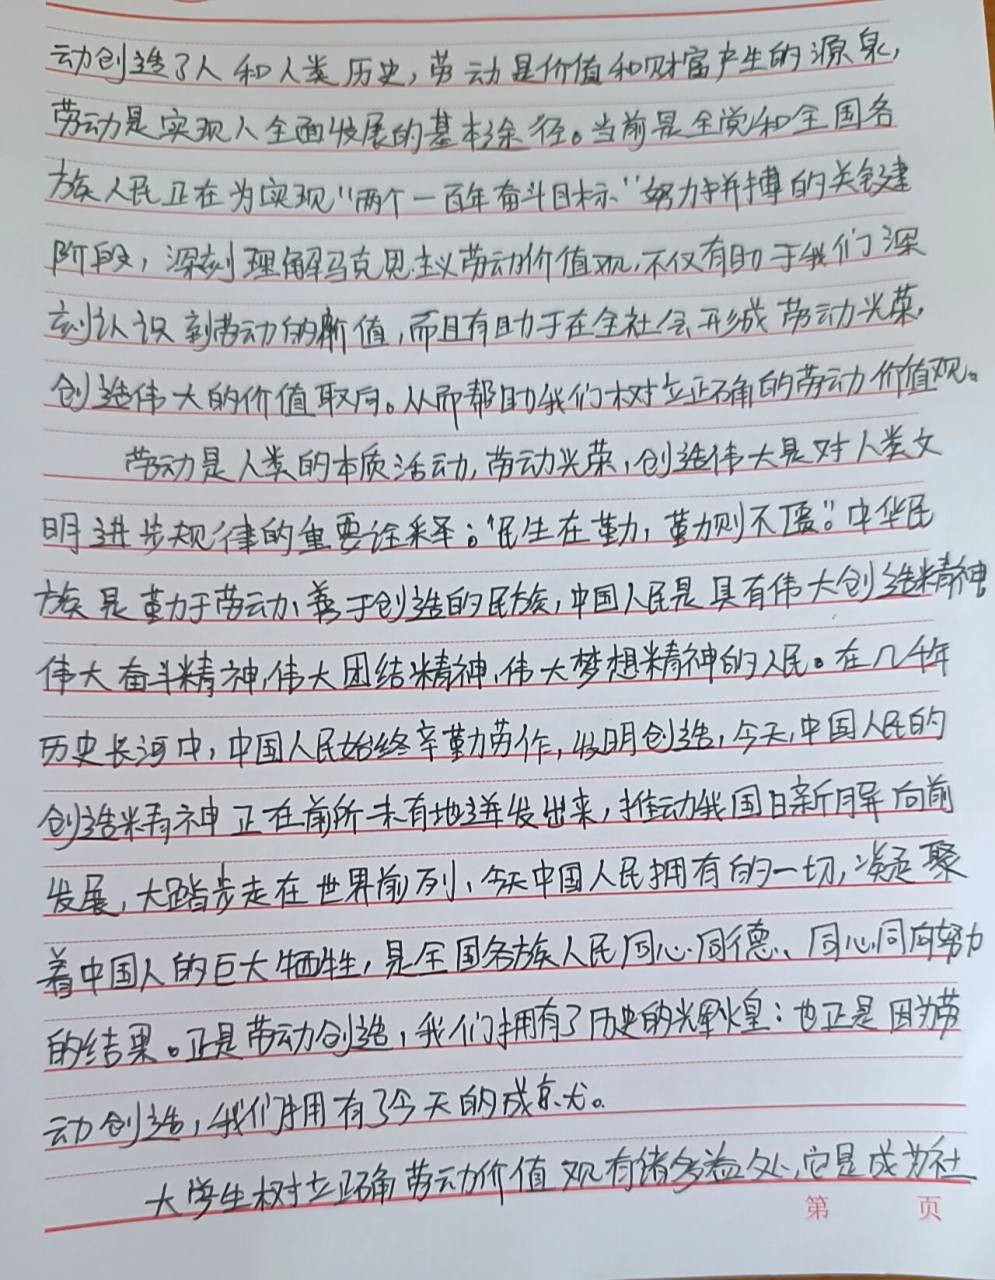 动创造了人和人类历史，劳动是价值和财富产生的源泉，
劳动是实现人全面发展的基本途径。当前是全党和全国各
族人民正在为实现“两个一百年奋斗目标”努力拼搏的关键
阶段，深刻理解马克思主义劳动价值观，不仅有助于我们深
刻认识到劳动的价值，而且有助于在全社会形成劳动光荣，
创造伟大的价值取向。从而帮助我们树立正确的劳动价值观。
劳动是人类的本质活动，劳动光荣，创造伟大是对人类文
明进步规律的重要诠释。“民生在勤，勤则不匮。”中华民
族是勤于劳动、善于创造的民族，中国人民是具有伟大创造精神
伟大奋斗精神，伟大团结精神，伟大梦想精神的人民。在几千年
历史长河中，中国人民始终辛勤劳作，发明创造，今天，中国人民的
创造精神正在前所未有地迸发出来，推动我国日新月异向前
发展，大踏步走在世界前列、今天中国人民拥有的一切，凝聚
着中国人的巨大牺牲，是全国各族人民同心同德、同心同向努力
的结果。正是劳动创造，我们拥有了历史的光辉煌；也正是因为劳
动创造，我们拥有了今天的成就。
大学生树立正确劳动价值观有诸多益处，它是成为社
第 页